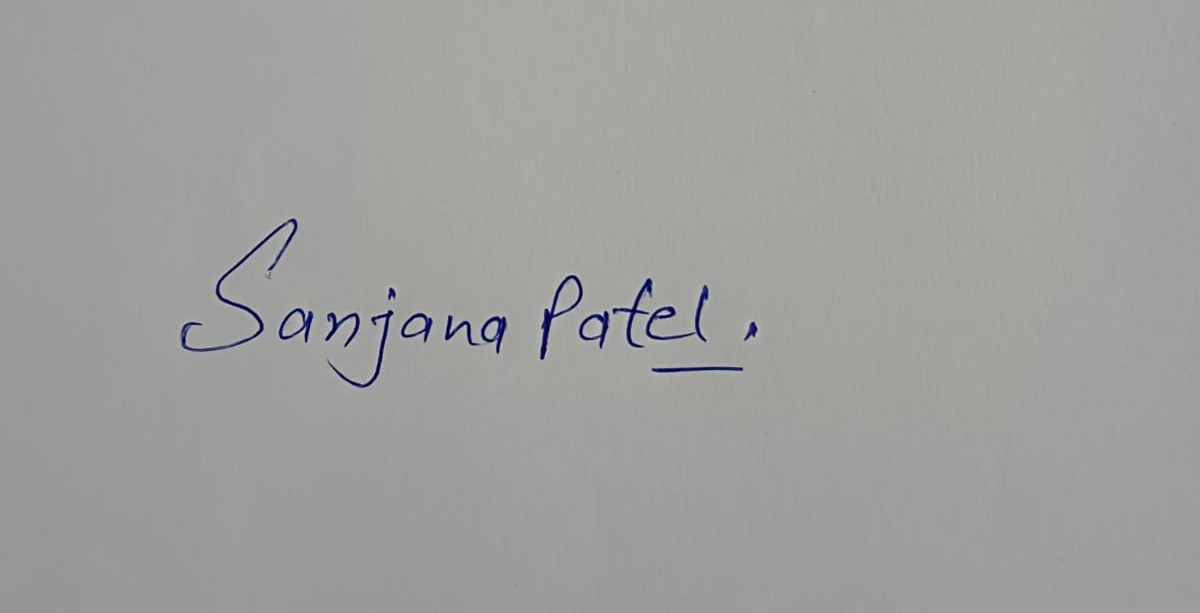 Sanjana Patel.